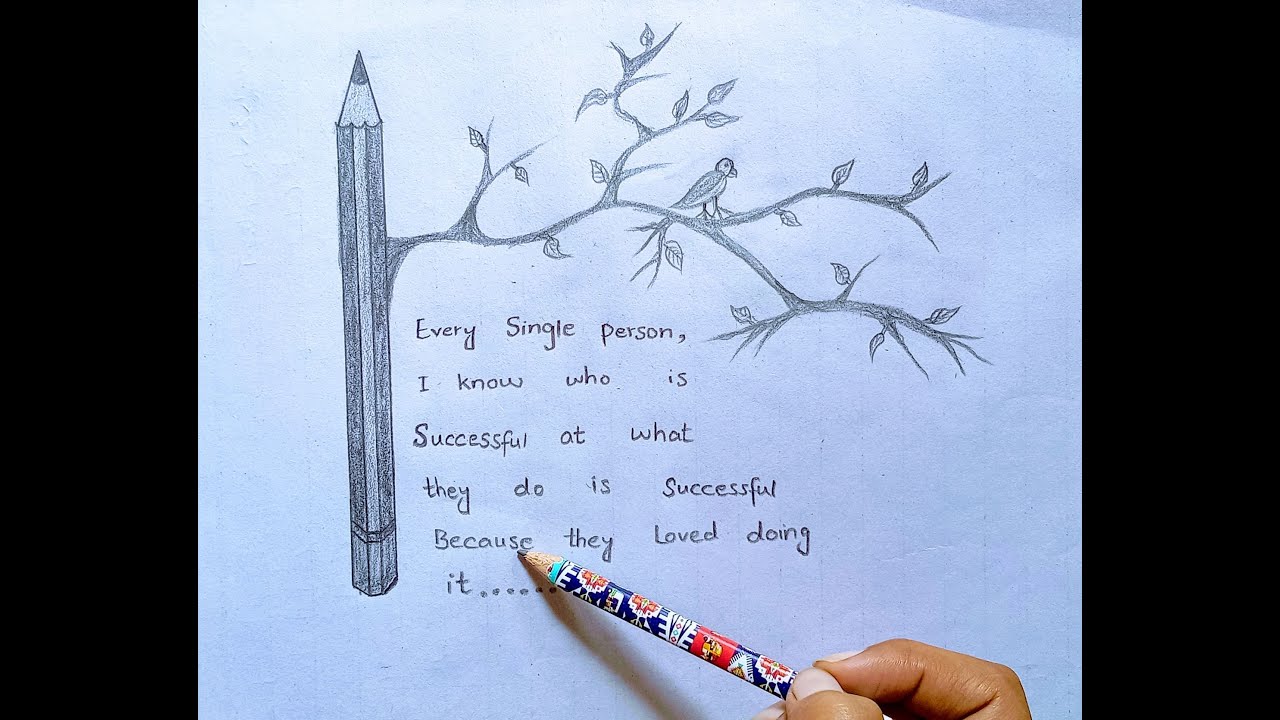 Every Single person,
I know who is
Successful at what
they do is Successful
Because they Loved doing
it.......